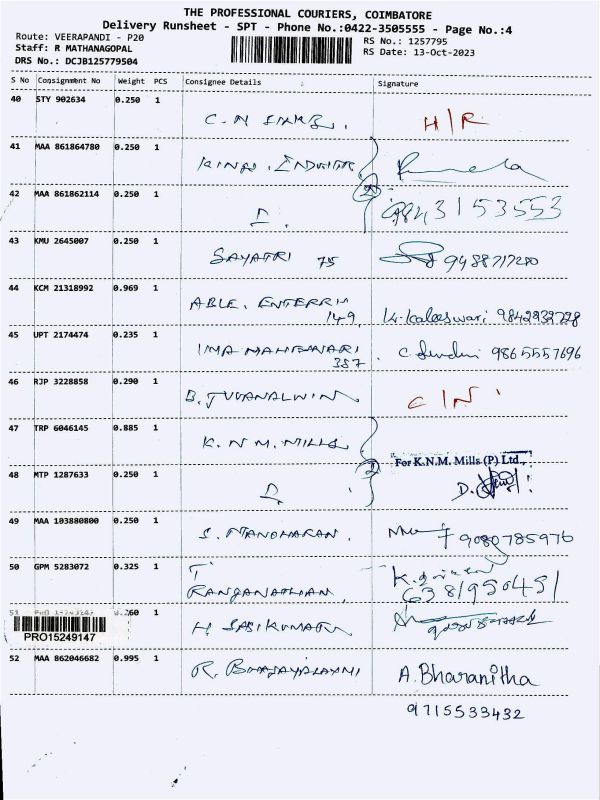 THE PROFESSIONAL COURIERS, COIMBATORE
Delivery Runsheet - SPT - Phone No.:0422-3505555 - Page No.:4
Route: VEERAPANDI - P20
RS No.: 1257795
Staff: R MATHANAGOPAL
RS Date: 13-Oct-2023
DRS No.: DCJB125779504
S No Consignment No Weight PCS Consignee Details Signature
40 STY 902634 0.250 1
H/R
41 MAA 861864780 0.250 1
42 MAA 861862114 0.250 1
9843153553
43 KMU 2645007 0.250 1
75 9488717280
44 KCM 21318992 0.969 1
ABLE. 149.
45 UPT 2174474 0.235 1
UMA MAHESWARI 357 9865557696
46 RJP 3228858 0.290 1
C/N
47 TRP 6046145 0.885 1
K.N.M. MILLS
For K.N.M. Mills (P) Ltd.,
48 MTP 1287633 0.250 1
49 MAA 103880800 0.250 1
S. MANOHARAN. 9080785976
50 GPM 5283072 0.325 1
T
RANGANATHAN.
51 1
PRO15249147
H SASIKUMAR
52 MAA 862046682 0.995 1
A. Bharanitha
9715533432